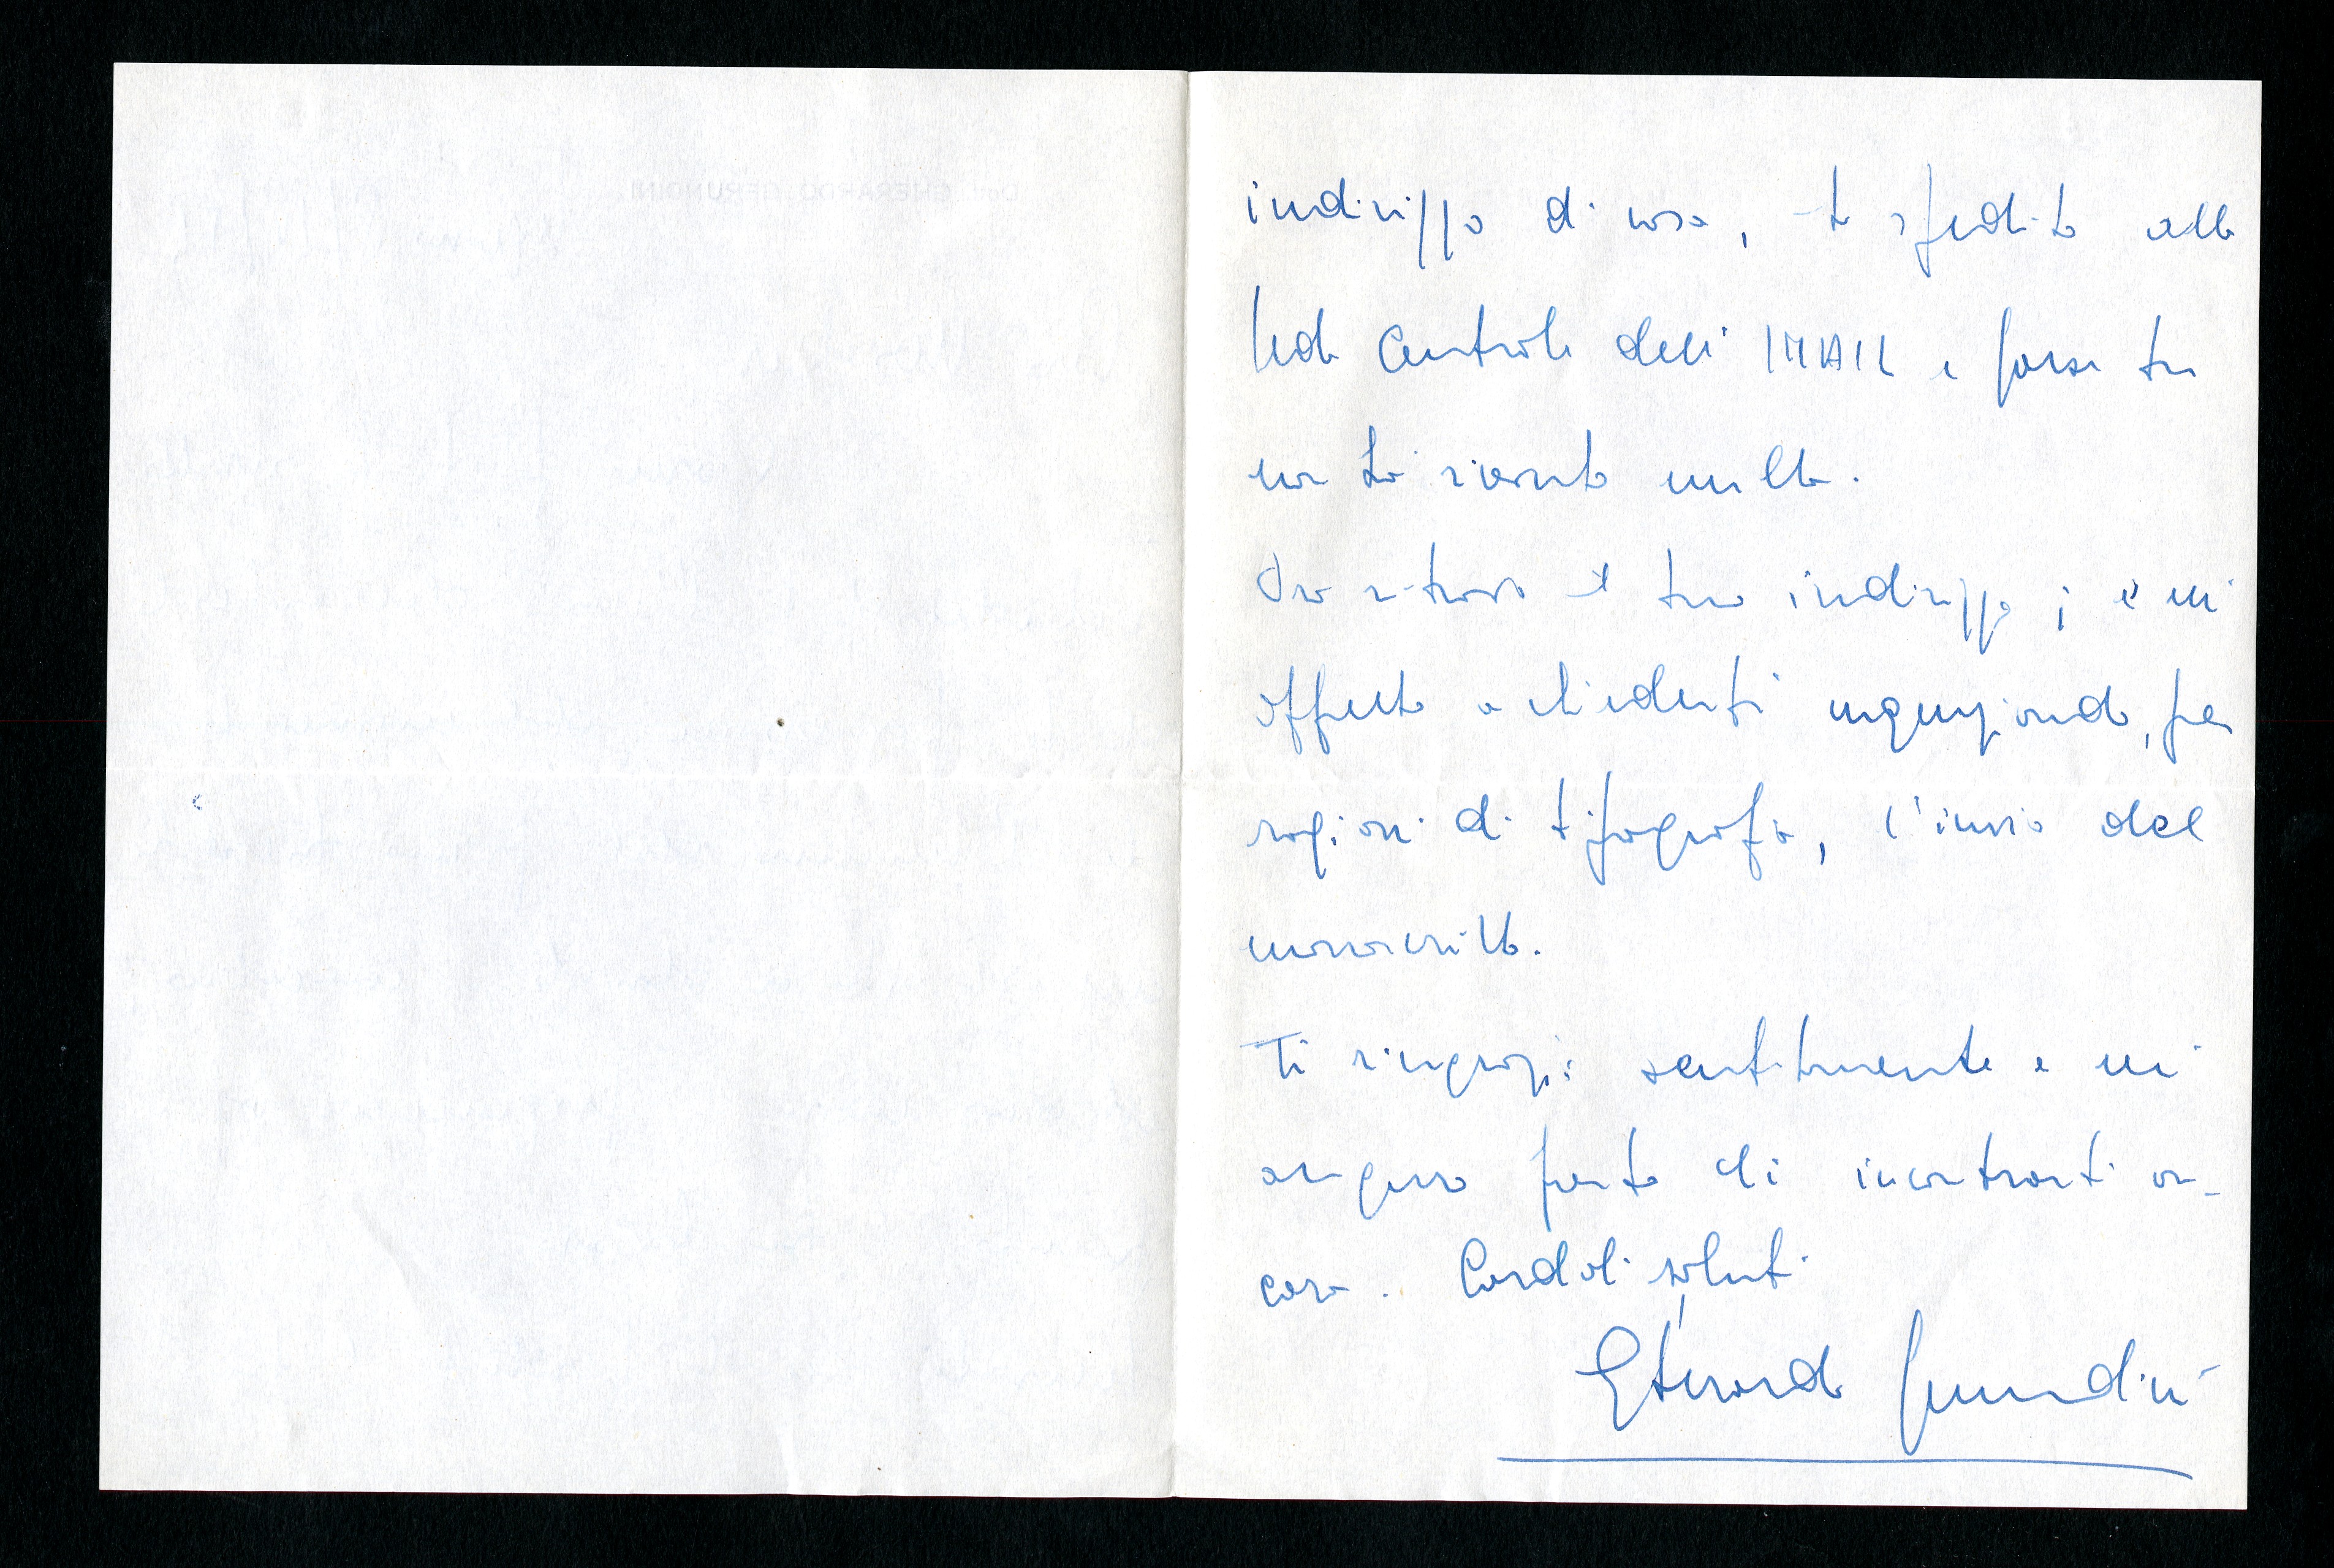 indirizzo di casa, ho spedito alla
Sede Centrale dell' INAIL e forse tu
non hai ricevuto nulla.
Ora ritrovo il tuo indirizzo; e mi
affretto a chiederti urgenzando, per
ragioni di tipografia, l'invio del
manoscritto.
Ti ringrazio sentitamente e mi
auguro presto di incontrarti an-
cora. Cordiali saluti
Gherardo Gerundini